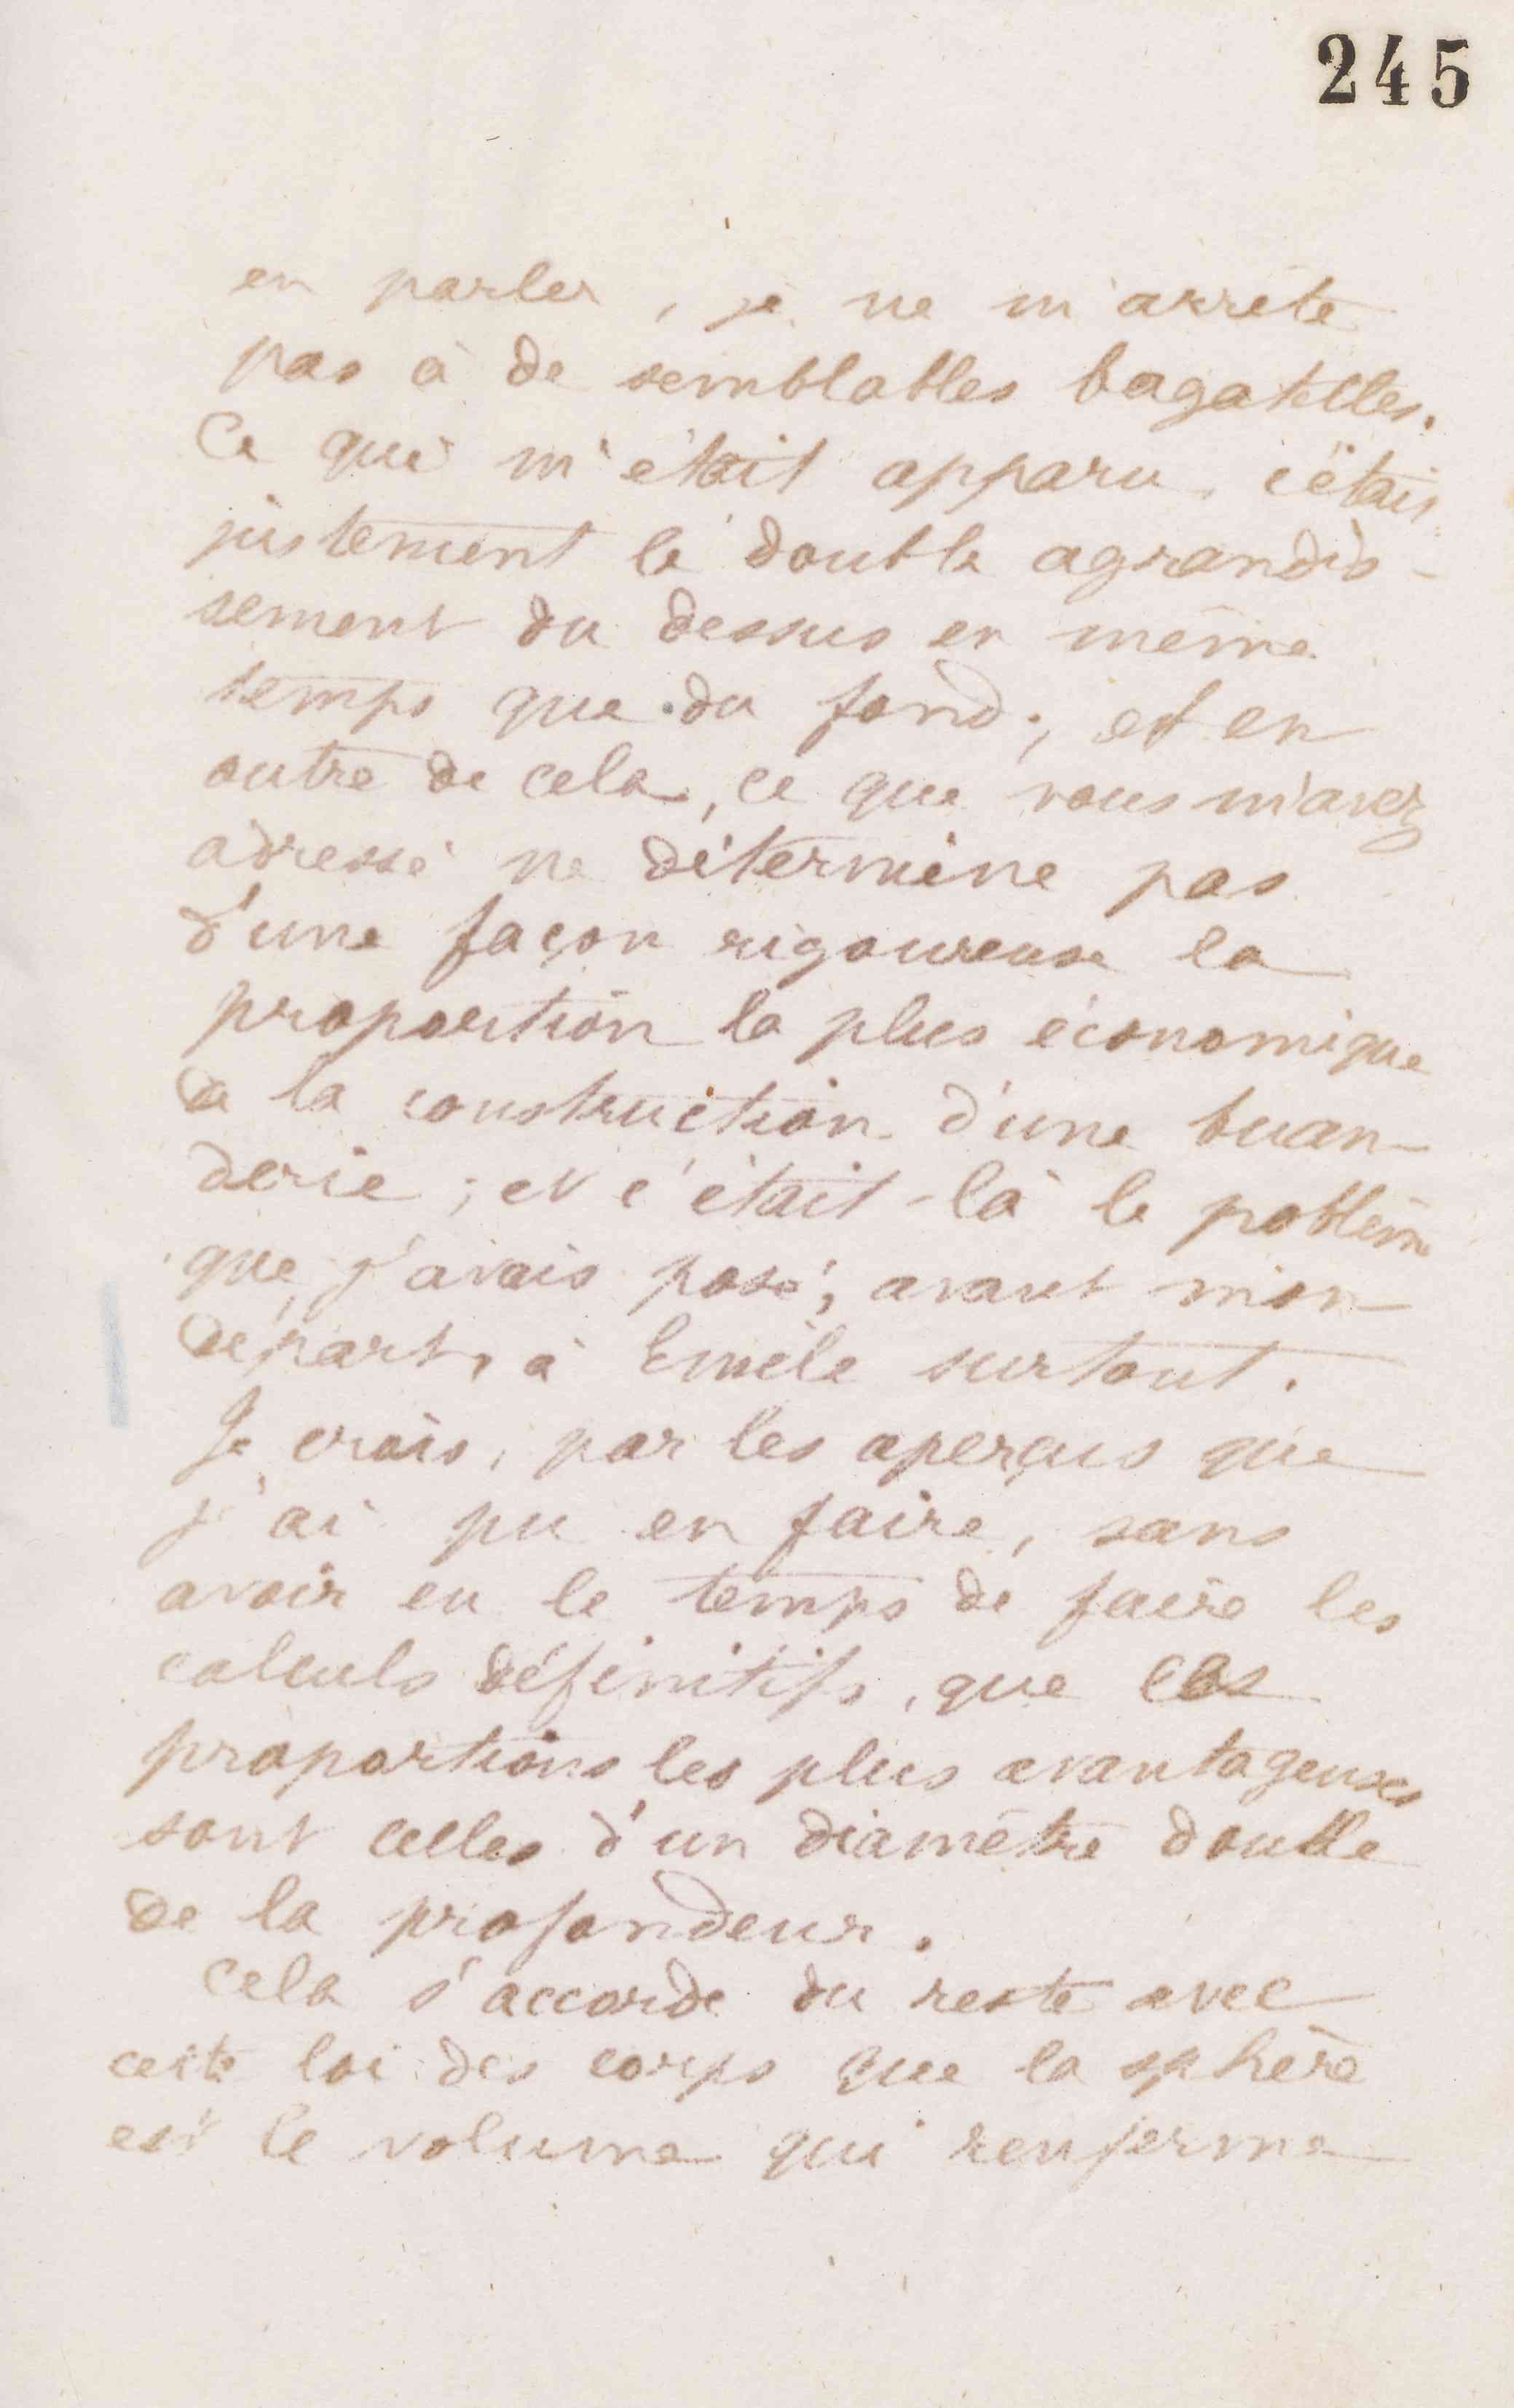 245
en parler, je ne m'arrête
pas à de semblables bagatelles.
Ce qui m'était apparu, c'était
justement le double agrandis-
sement du dessus en même
temps que du fond; et en
outre de cela, ce que vous m'avez
adressé ne détermine pas
d'une façon rigoureuse la
proportion la plus économique
de la construction d'une buan-
derie; et c'était là le poblème
que j'avais posé, avant mon
départ, à Emile surtout.
Je crois, par les aperçus que
j'ai pu en faire, sans
avoir eu le temps de faire les
calculs définitifs, que les
proportions les plus avantageuses
sont celles d'un diamètre double
de la profondeur.
Cela s'accorde du reste avec
cette loi des corps que la sphère
est le volume qui renferme